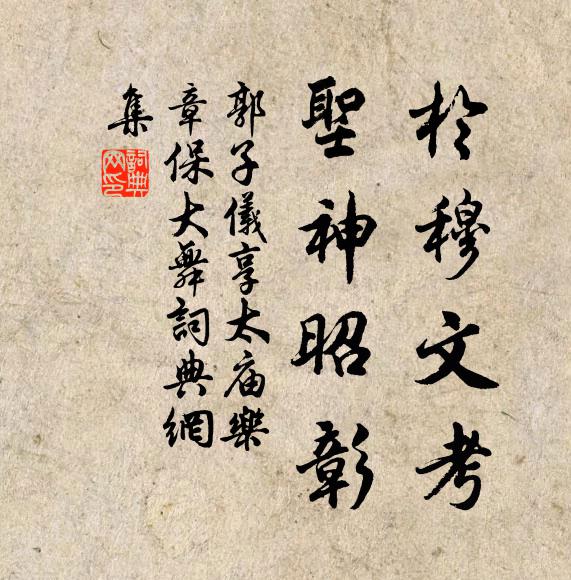 於穆文考
聖神昭彰
郭子儀享太庙樂
章保大舞詞典網
集
詞典
网印